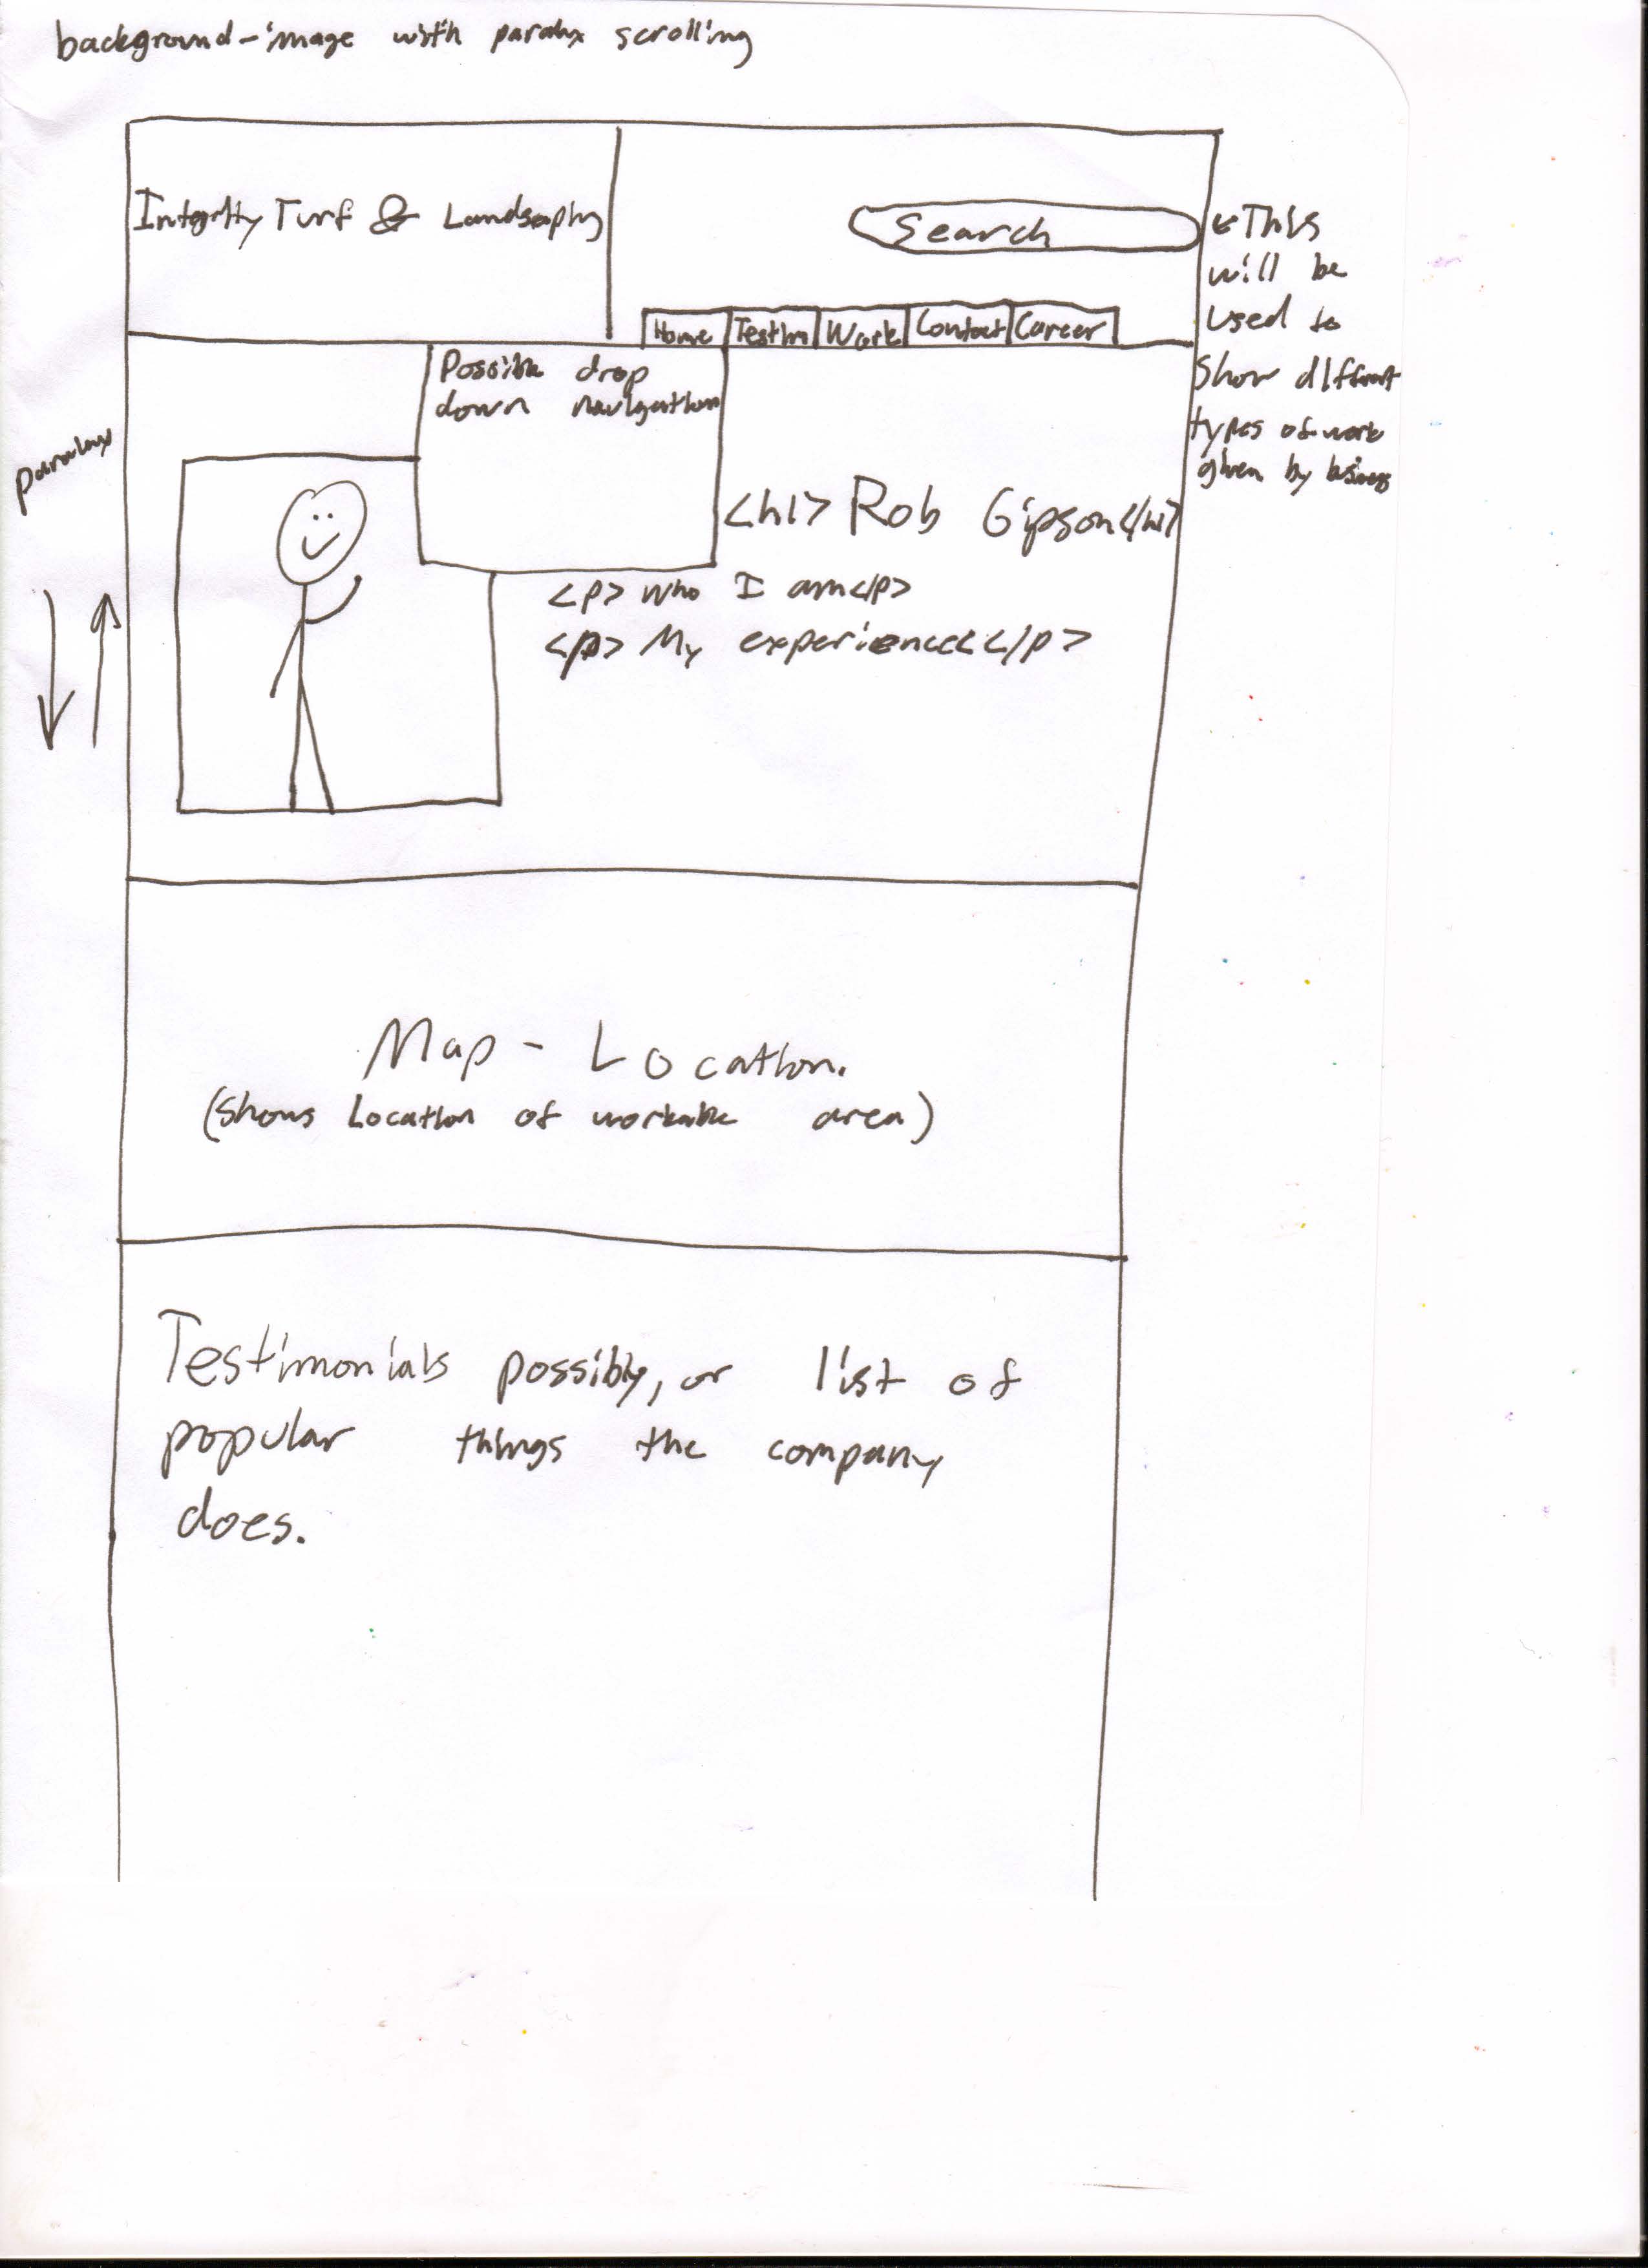 background-image with paralax scrolling
Integrity Turf & Landscaping
Search
Home
Testim
Work
Contact
Career
←This
will be
used to
show different
types of work
given by business
Possible drop
down navigation
paralax
<h1> Rob Gipson</h1>
<p> Who I am</p>
<p> My experience<</p>
Map - Location.
(Shows Location of workable area)
Testimonials possibly, or list of
popular things the company
does.